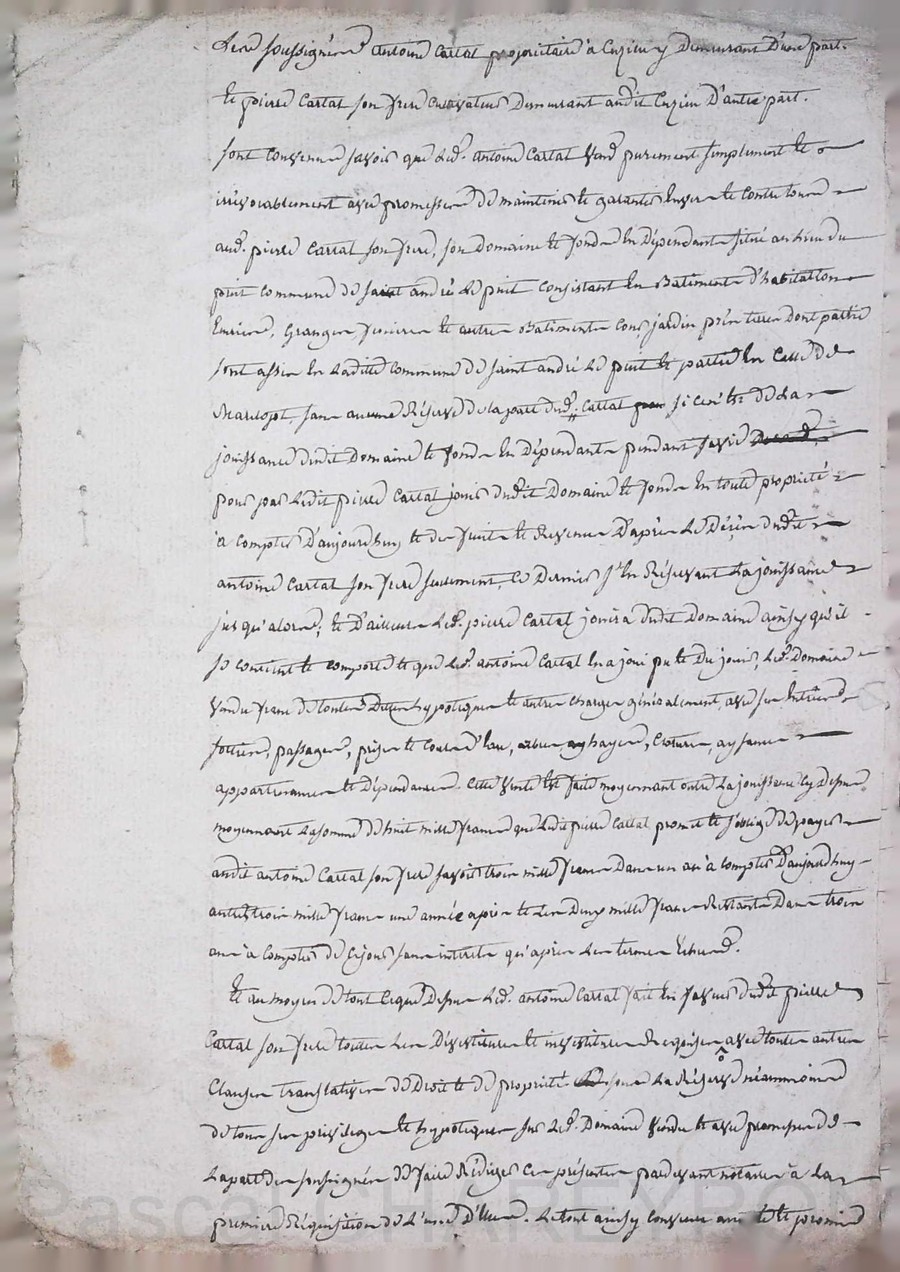 Les soussignés antoine Cartal propriétaire à Cuzieu y Demeurant D'une part.
Et pierre Cartal son frere Cultivateur Demeurant audit Cuzieu D'autre part.
sont Convenus savoir que Led. antoine Cartal Vend purement simplement Et
irrévocablement avec promesse de maintenir Et garantir Envers Et Contre tous
aud. pierre Cartal son frere, son Domaine Et fonds En Dépendants situé au lieu du
puit Commune de saint andré Le puit Consistant En Batiments d'habitation
Ecuries, Granges fenieres Et autres Batiments Cour jardin prés terres Dont partie
sont assis En Ladite Commune de saint andré Le puit Et partie En Celle de
sans aucune Réserve de la part dud. Cartal si ce n'est de La
jouissance dudit Domaine Et fonds En Dépendants pendant sa vie
pour par Ledit pierre Cartal jouir dudit Domaine Et fonds En toute propriété
à Compter D'aujourd'huy Et des fruits Et Revenus D'après Le Décès dudit
antoine Cartal son frere seulement, Ce Dernier s'En Réservant La jouissance
jusqu'alors, Et D'ailleurs Led. pierre Cartal jouira dudit Domaine ainsy qu'il
se Contient Et Comporte Et que Led. antoine Cartal En a joui pu Et Du jouir, Led. Domaine
Vendu franc de toutes Dettes hypoteques Et autres Charges généralement, avec ses Entrées
sorties, passages, prises Et Cours d'Eau, arbres, hayes, Clotures, aysances
appartenances Et Dépendances. Cette Vente Est faite moyennant outre La jouissance Cy Dessus
moyennant La somme de huit mille francs que Ledit pierre Cartal promet Et s'oblige de payer
audit antoine Cartal son frere savoir trois mille francs Dans un an à Compter D'aujourd'huy
autres trois mille francs une année après Et Les Deux mille francs Restants Dans trois
ans à Compter de Ce jour sans interets qu'après Les termes Echus.
Et au moyen de tout Ce que Dessus Led. antoine Cartal fait En faveur dudit pierre
Cartal son frere toutes Les Dévestitures Et investitures Requises avec toutes autres
Clauses translatives de Droit Et de propriété sous La Réserve néanmoins
de tous ses privileges Et hypoteques sur Led. Domaine Vendu Et avec promesse de
La part des soussignés de faire Rédiger Ces présentes pardevant notaire à La
premiere Réquisition de L'un D'Eux. Le tout ainsy Convenu Et promis